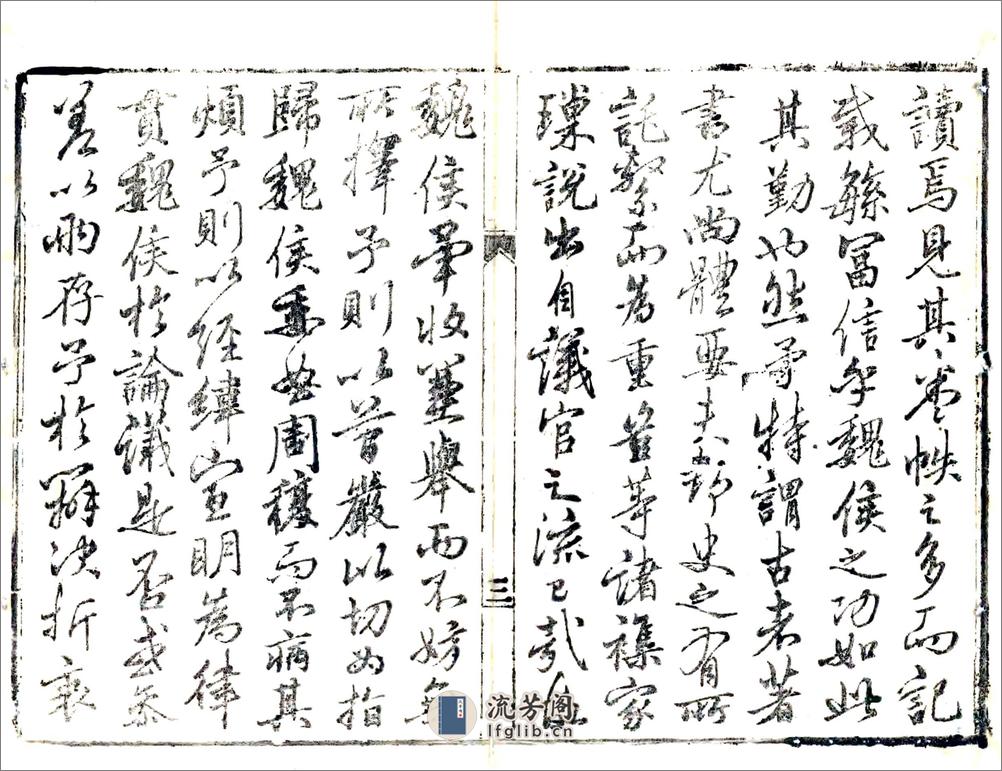 讀焉見其卷帙之多而記
載繇冨信乎魏侯之功如此
其勤也然予特謂古者著
書尤尚體要夫野史之有所
託繫而為重豈等諸襍家
璅說出自議官之流已哉
魏侯彙收並舉而不妨無
所擇予則以晉嚴以切如指
歸魏侯垂世周穫而不病其
煩予則以經緯宜明為律
貫魏侯於論議是否或參
差以兩存予於辯決折衷
三
流芳阁
lfglib.cn